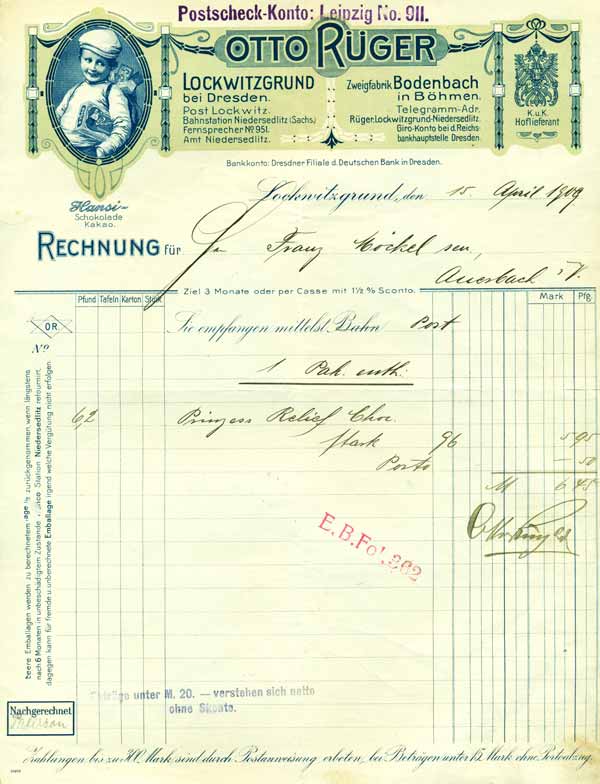 Postscheck-Konto: Leipzig No. 911.
OTTO RÜGER
LOCKWITZGRUND
bei Dresden.
Post Lockwitz.
Bahnstation Niedersedlitz (Sachs.)
Fernsprecher Nº 951.
Amt Niedersedlitz.
Zweigfabrik Bodenbach
in Böhmen.
Telegramm-Adr.
Rüger Lockwitzgrund-Niedersedlitz.
Giro-Konto bei d. Reichs-
bankhauptstelle Dresden.
K.u.K.
Hoflieferant
Bankkonto: Dresdner Filiale d. Deutschen Bank in Dresden.
Hansi-
Schokolade
Kakao.
Lockwitzgrund, den 15. April 1909
RECHNUNG für Franz Möckel sen.,
Auerbach i/V.
Ziel 3 Monate oder per Casse mit 1½ % Sconto.
Pfund Tafeln Karton Stück Mark Pfg.
OR
Nº
Sie empfangen mittelst Bahn Post
1 Pak. enth.
6,2 Prinzess Relief Choc.
stark 96 5 95
Porto — 50
M 6 45
E.B.Fol. 362
Leere Emballagen werden zu berechnetem Preise zurückgenommen, wenn längstens
nach 6 Monaten in unbeschädigtem Zustande franko Station Niedersedlitz retourniert,
dagegen kann für fremde u. unberechnete Emballage irgend welche Vergütung nicht erfolgen
Beträge unter M. 20. — verstehen sich netto
ohne Skonto.
Nachgerechnet
Zahlungen bis zu 300 Mark sind durch Postanweisung erbeten, bei Beträgen unter 15 Mark ohne Portoabzug.